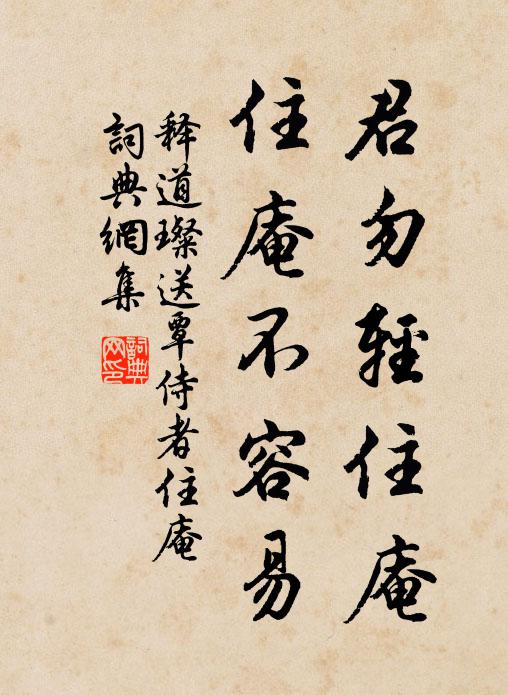 君勿輕住庵
住庵不容易
释道璨送覃侍者住庵
詞典網集
詞典網印